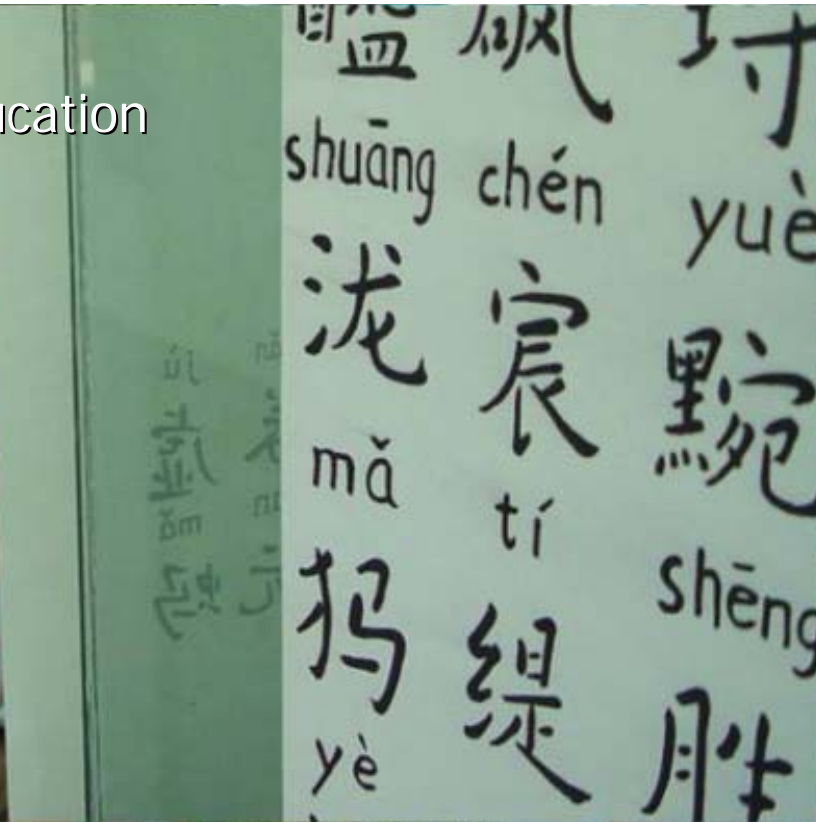 ucation
shuāng chén yuè
泷 宸 黦
mǎ tí shēng
犸 缇 胜
yè